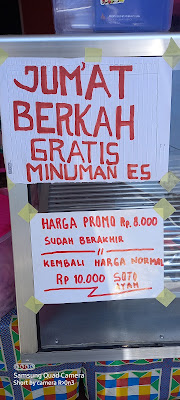 JUM'AT
BERKAH
GRATIS
MINUMAN ES
HARGA PROMO Rp. 8.000
SUDAH BERAKHIR
//
KEMBALI HARGA NORMAL
Rp 10.000 SOTO
AYAM
Samsung Quad Camera
Short by camera R>0n3